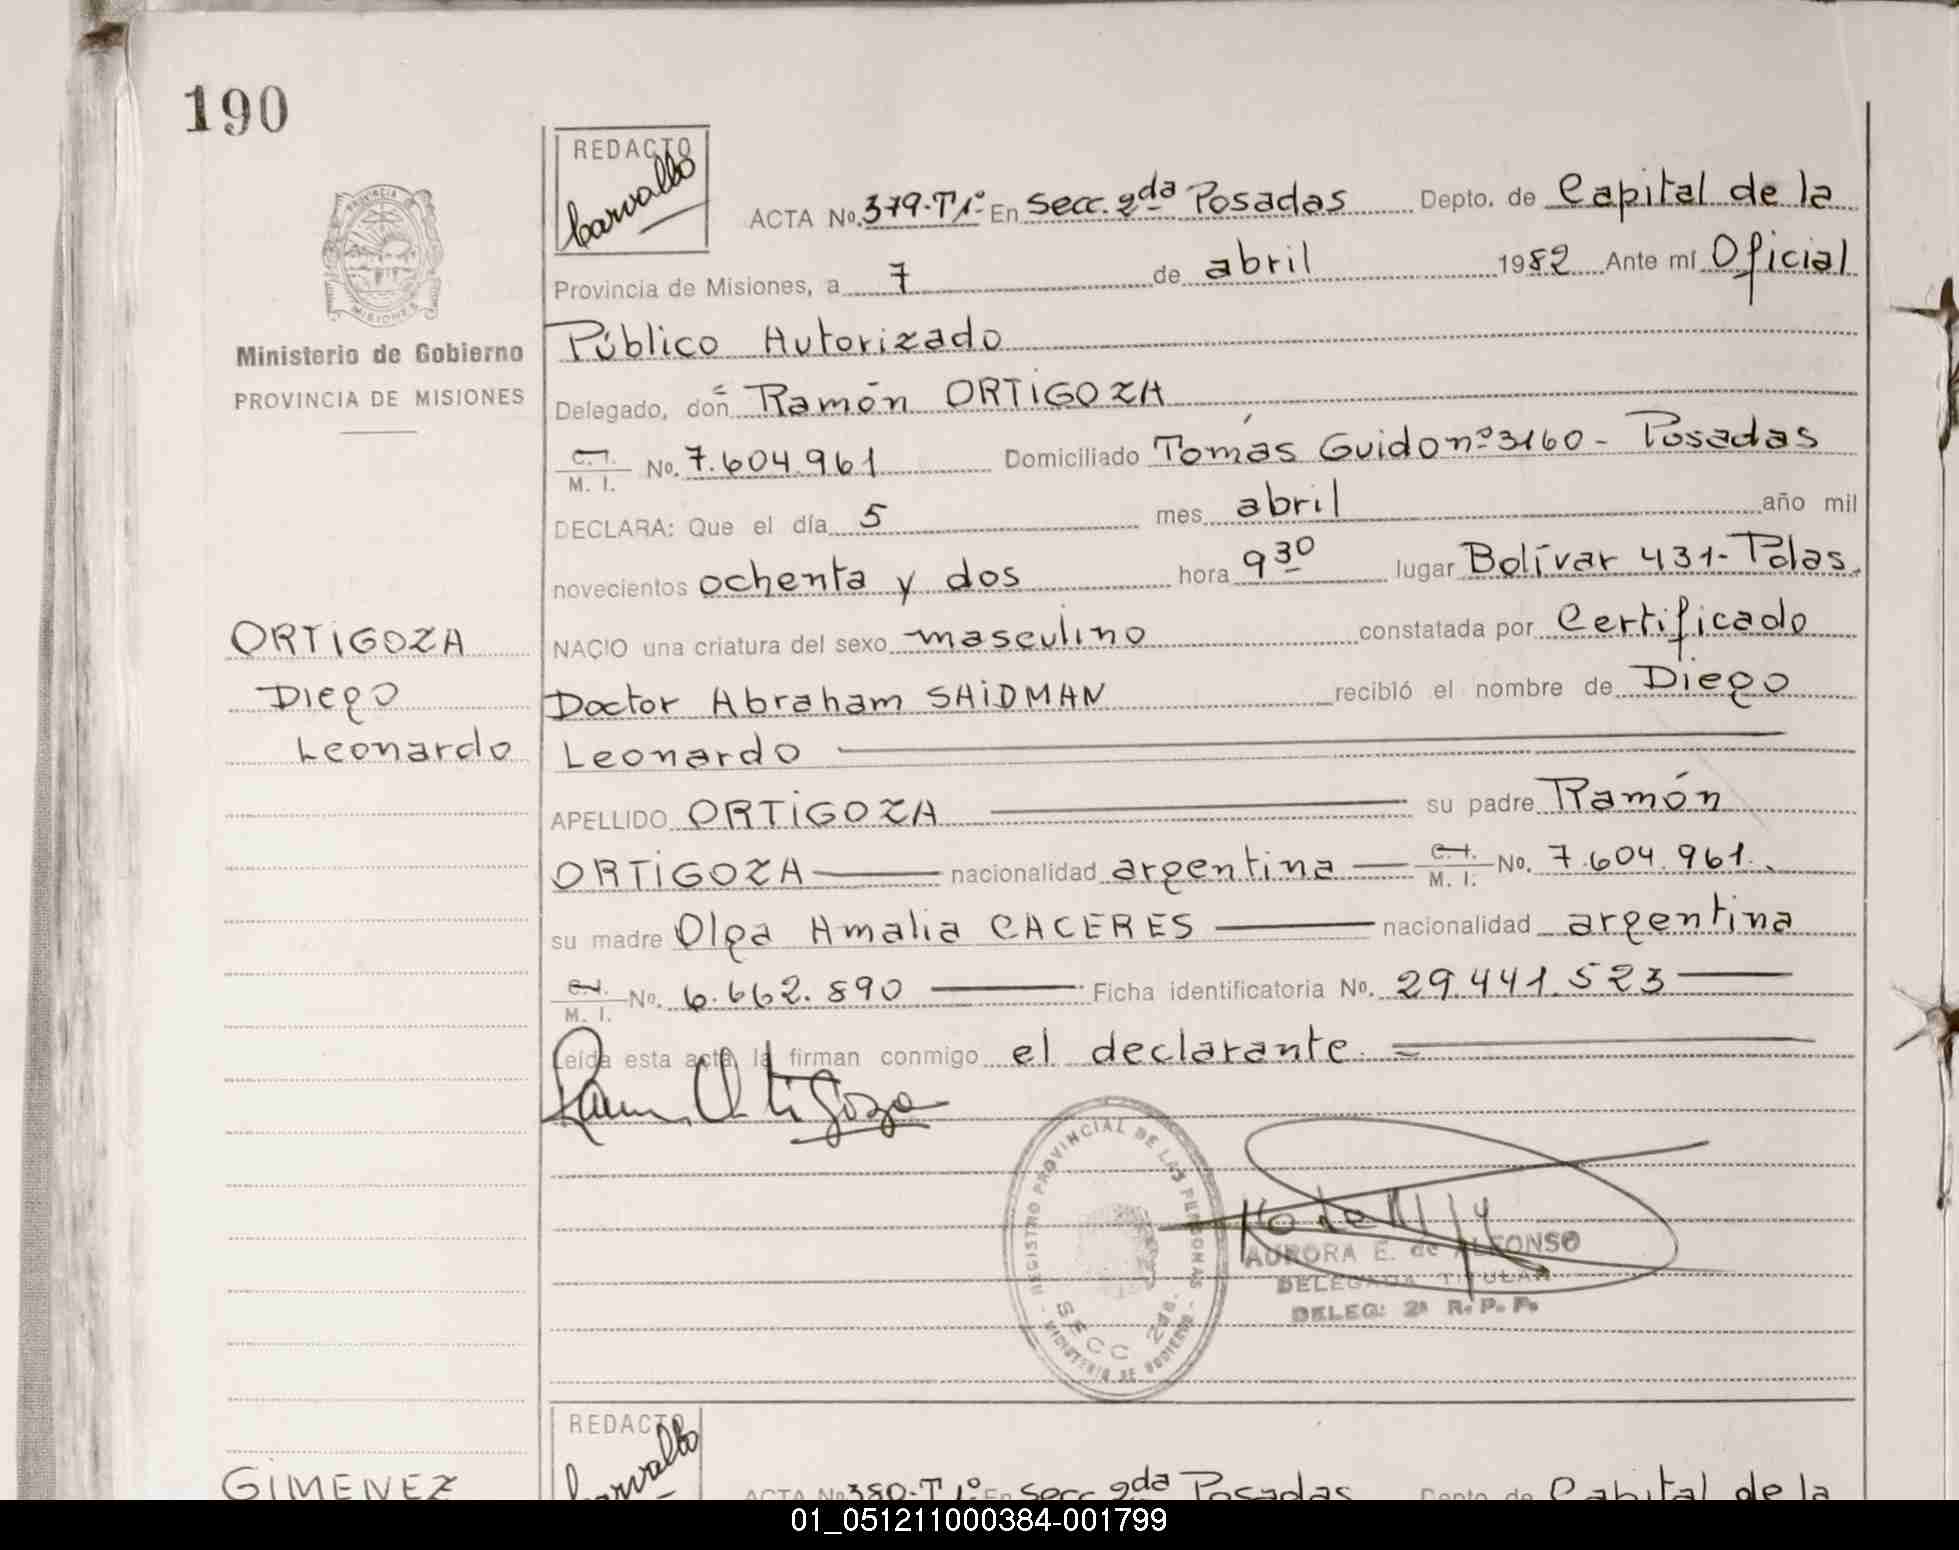 190
REDACTO
Carvallo
ACTA No. 379-T1º En Secc. 2da Posadas Depto. de Capital de la
Provincia de Misiones, a 7 de abril 1982 Ante mí Oficial
Público Autorizado
Delegado, don Ramón ORTIGOZA
C.I. M. I. No. 7.604.961 Domiciliado Tomás Guido nº 3160 - Posadas
DECLARA: Que el día 5 mes abril año mil
novecientos ochenta y dos hora 9 30 lugar Bolívar 431 - Pdas.
NACIO una criatura del sexo masculino constatada por Certificado
Doctor Abraham SAIDMAN recibió el nombre de Diego
Leonardo
APELLIDO ORTIGOZA su padre Ramón
ORTIGOZA nacionalidad argentina C.I. M. I. No. 7.604.961.
su madre Olga Amalia CACERES nacionalidad argentina
C.I. M. I. No. 6.662.890 Ficha identificatoria No. 29.441.523
Leída esta acta, la firman conmigo el declarante.
Ramón Ortigoza
PROVINCIA
MISIONES
Ministerio de Gobierno
PROVINCIA DE MISIONES
ORTIGOZA
Diego
Leonardo
REGISTRO PROVINCIAL DE LAS PERSONAS
SECC 2da.
MINISTERIO DE GOBIERNO
AURORA E. de ALFONSO
DELEGADA TITULAR
DELEG: 2ª R. P. P.
GIMENEZ
REDACTO
Carvallo
ACTA No 380-T1º En Secc. 2da Posadas Depto de Capital de la
01_051211000384-001799